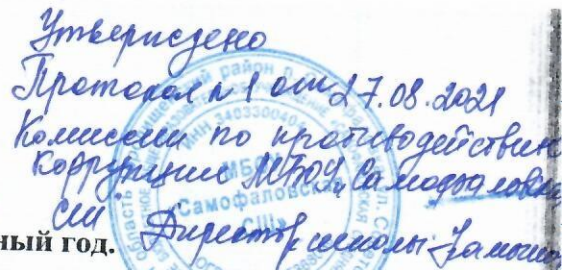 Утверждено
Протокол №1 от 27.08.2021
Комиссии по противодействию
коррупции МБОУ „Самофаловка
СШ"
ный год. Директор школы:
МБ
Самофаловская
СШ»